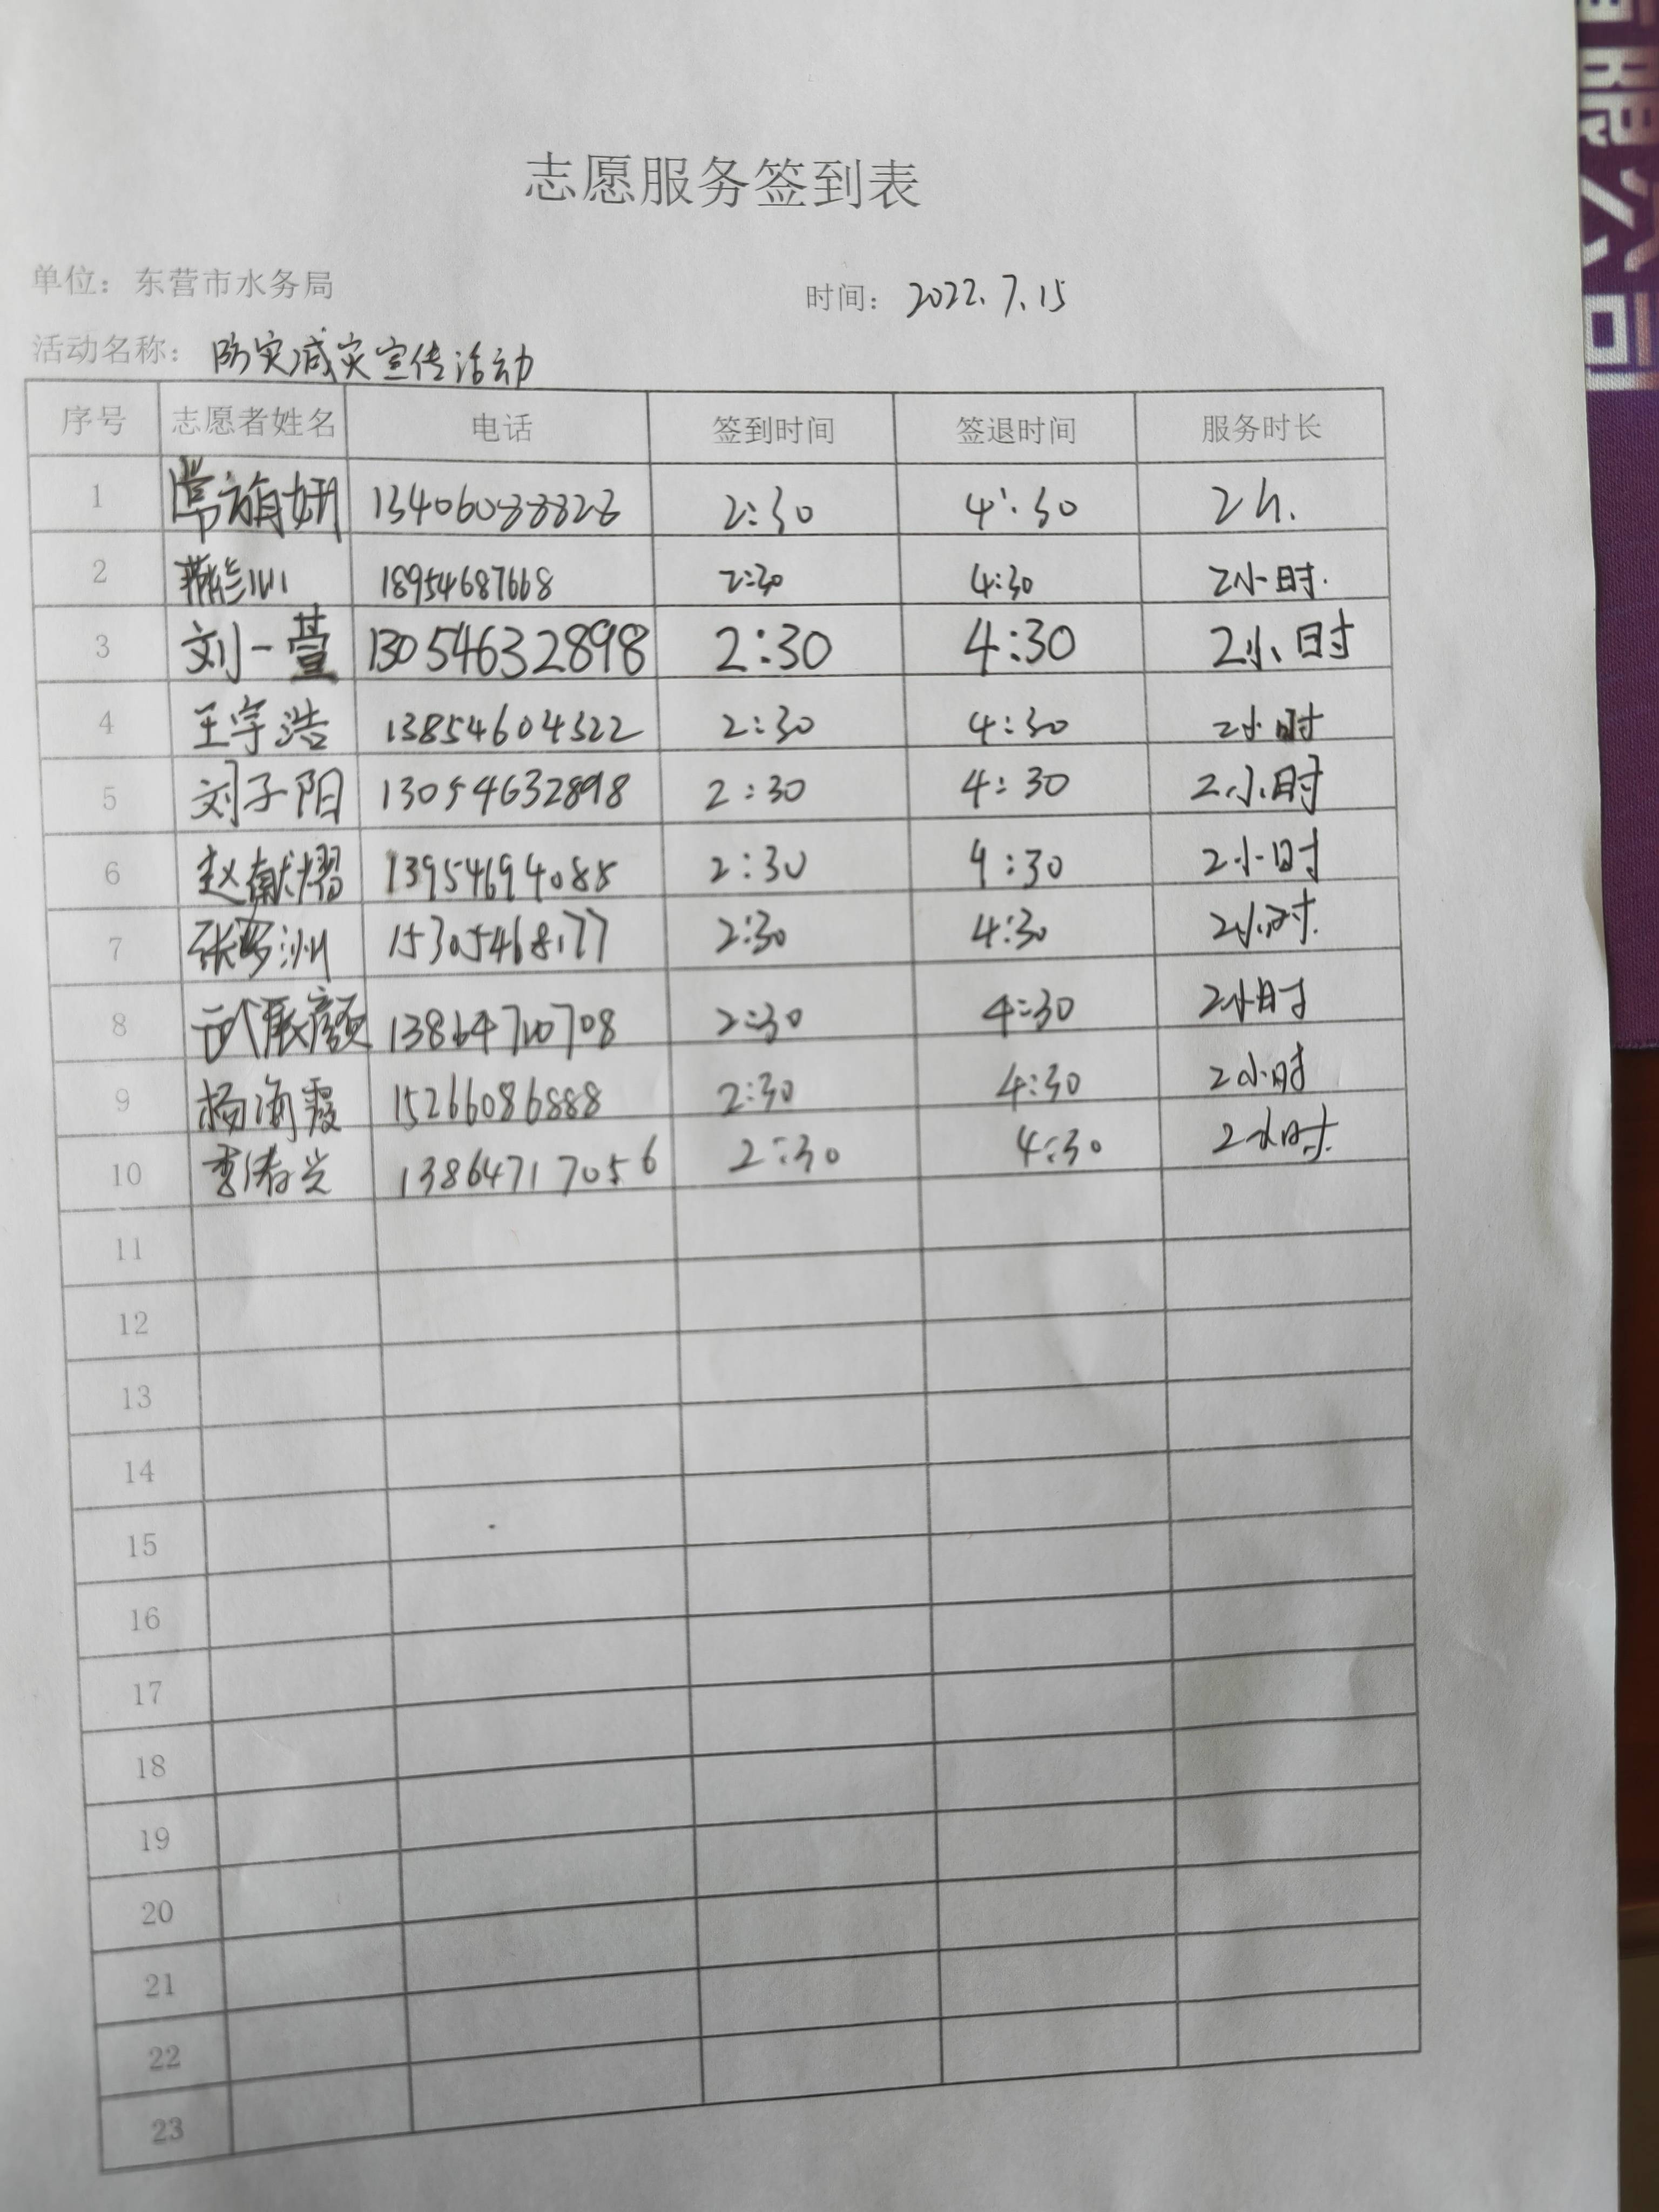 志愿服务签到表
单位：东营市水务局 时间：2022.7.15
活动名称：防灾减灾宣传活动
序号 志愿者姓名 电话 签到时间 签退时间 服务时长
1 13406088828 2:30 4:30 2h.
2 18954687668 2:30 4:30 2小时.
3 刘一萱 13054632898 2:30 4:30 2小时
4 王宇浩 13854604322 2:30 4:30 2小时
5 刘子阳 13054632898 2:30 4:30 2小时
6 赵献熠 13954694088 2:30 4:30 2小时
7 15305468177 2:30 4:30 2小时.
8 13864710708 2:30 4:30 2小时
9 杨海霞 15266086888 2:30 4:30 2小时
10 13864717056 2:30 4:30 2小时.
11
12
13
14
15
16
17
18
19
20
21
22
23
限公司